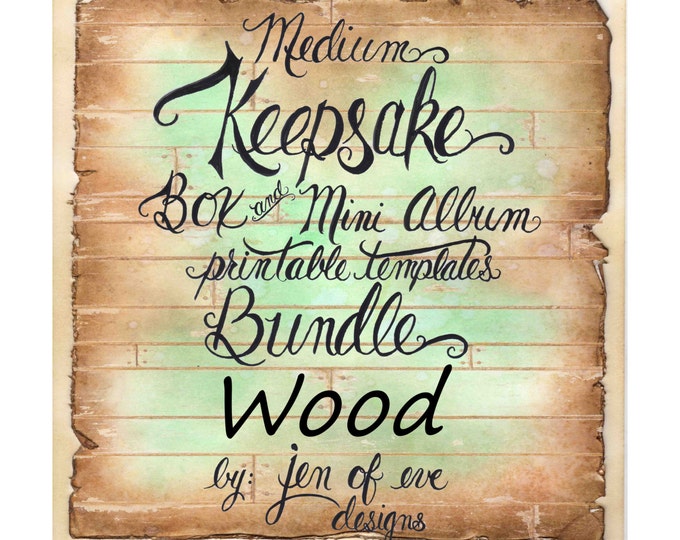 Medium
Keepsake
Box and Mini Album
printable templates
Bundle
Wood
by: jen of eve
designs